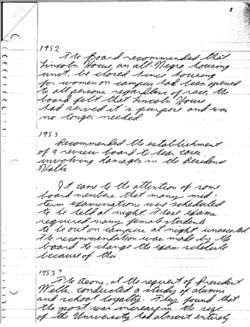 1952
The Board recommended that
Lincoln House, an all-Negro housing
unit, be closed. Since housing
for women on campus had been opened
to all persons regardless of race, the
board felt that Lincoln House
had served it's purpose and was
no longer needed.
1953
Recommended the establishment
of a review board to hear cases
involving damages in the Residence
Halls
It came to the attention of some
board members that many mid
term examinations were scheduled
to be held at night. These exams
required many female students
to be out on campus at night unescorted
The recommendation was made by the
board to change the exam schedule
because of this.
1953?
The Assoc, at the request of President
conducted a study of alumni
and school loyalty. They found that
the spirit was increase in the rest
of the University had almost entirely